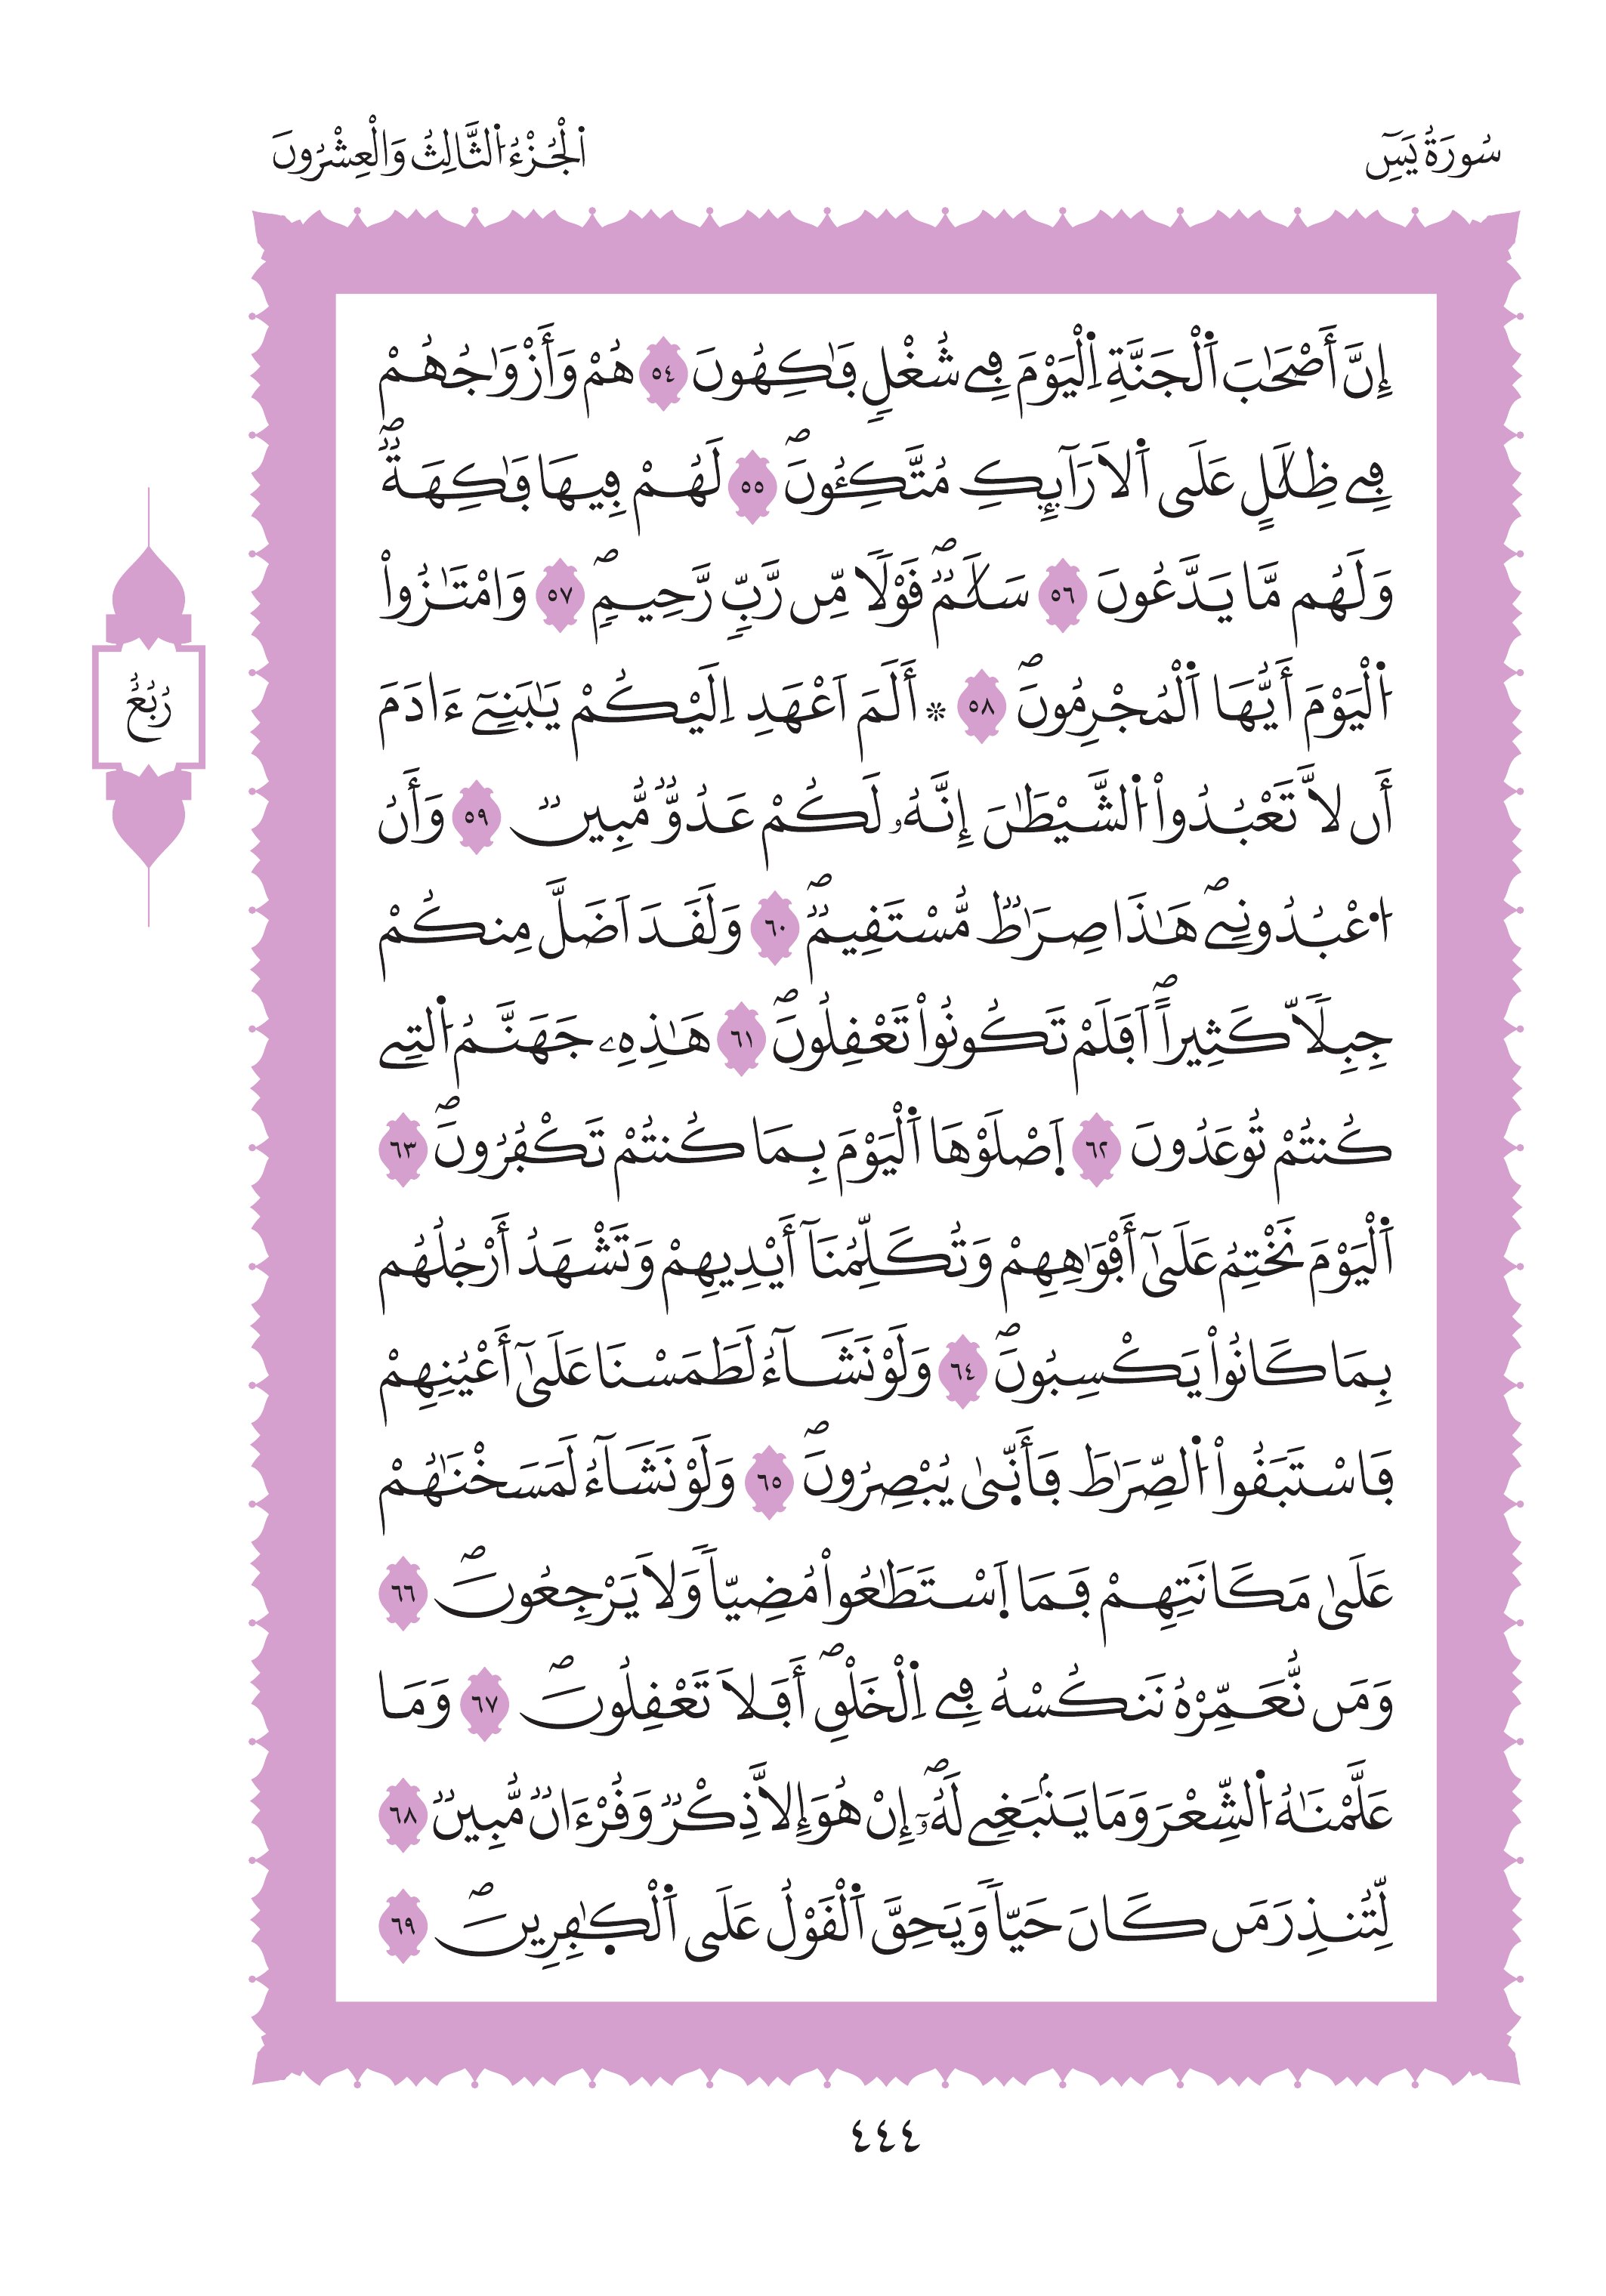 سُورَةُ يَسِٓ
اَ۬لْجُزْءُ اُ۬لثَّالِثُ وَالْعِشْرُونَ
إِنَّ أَصْحَٰبَ اَ۬لْجَنَّةِ اِ۬لْيَوْمَ فِے شُغْلٖ فَٰكِهُونَ ٥٤ هُمْ وَأَزْوَٰجُهُمْ
فِے ظِلَٰلٍ عَلَي اَ۬لَارَآئِكِ مُتَّكِـُٔونَۖ ٥٥ لَهُمْ فِيهَا فَٰكِهَةٞۖ
وَلَهُم مَّا يَدَّعُونَ ٥٦ سَلَٰمٞۖ قَوْلاٗ مِّن رَّبّٖ رَّحِيمٖۖ ٥٧ وَامْتَٰزُواْ
اُ۬لْيَوْمَ أَيُّهَا اَ۬لْمُجْرِمُونَۖ ٥٨ ۞ أَلَمَ اَعْهَدِ اِلَيْكُمْ يَٰبَنِےٓ ءَادَمَ
أَن لَّا تَعْبُدُواْ اُ۬لشَّيْطَٰنَ إِنَّهُۥ لَكُمْ عَدُوّٞ مُّبِينٞ ٥٩ وَأَنُ
اُ۟عْبُدُونِےۖ هَٰذَا صِرَٰطٞ مُّسْتَقِيمٞۖ ٦٠ وَلَقَدَ اَضَلَّ مِنكُمْ
جِبِلّاٗ كَثِيراًۖ اَفَلَمْ تَكُونُواْ تَعْقِلُونَۖ ٦١ هَٰذِهِۦ جَهَنَّمُ اُ۬لتِے
كُنتُمْ تُوعَدُونَ ٦٢ اَ۪صْلَوْهَا اَ۬لْيَوْمَ بِمَا كُنتُمْ تَكْفُرُونَۖ ٦٣
اَ۬لْيَوْمَ نَخْتِمُ عَلَىٰٓ أَفْوَٰهِهِمْ وَتُكَلِّمُنَآ أَيْدِيهِمْ وَتَشْهَدُ أَرْجُلُهُم
بِمَا كَانُواْ يَكْسِبُونَۖ ٦٤ وَلَوْ نَشَآءُ لَطَمَسْنَا عَلَىٰٓ أَعْيُنِهِمْ
فَاسْتَبَقُواْ اُ۬لصِّرَٰطَ فَأَنّ۪ىٰ يُبْصِرُونَۖ ٦٥ وَلَوْ نَشَآءُ لَمَسَخْنَٰهُمْ
عَلَىٰ مَكَانَتِهِمْ فَمَا اَ۪سْتَطَٰعُواْ مُضِيّاٗ وَلَا يَرْجِعُونَۖ ٦٦
وَمَن نُّعَمِّرْهُ نَنكُسْهُ فِے اِ۬لْخَلْقِۖ أَفَلَا تَعْقِلُونَۖ ٦٧ وَمَا
عَلَّمْنَٰهُ اُ۬لشِّعْرَ وَمَا يَنۢبَغِے لَهُۥٓۖ إِنْ هُوَ إِلَّا ذِكْرٞ وَقُرْءَانٞ مُّبِينٞ ٦٨
لِّتُنذِرَ مَن كَانَ حَيّاٗ وَيَحِقَّ اَ۬لْقَوْلُ عَلَي اَ۬لْكٰ۪فِرِينَۖ ٦٩
رُبُعُ
٤٤٤